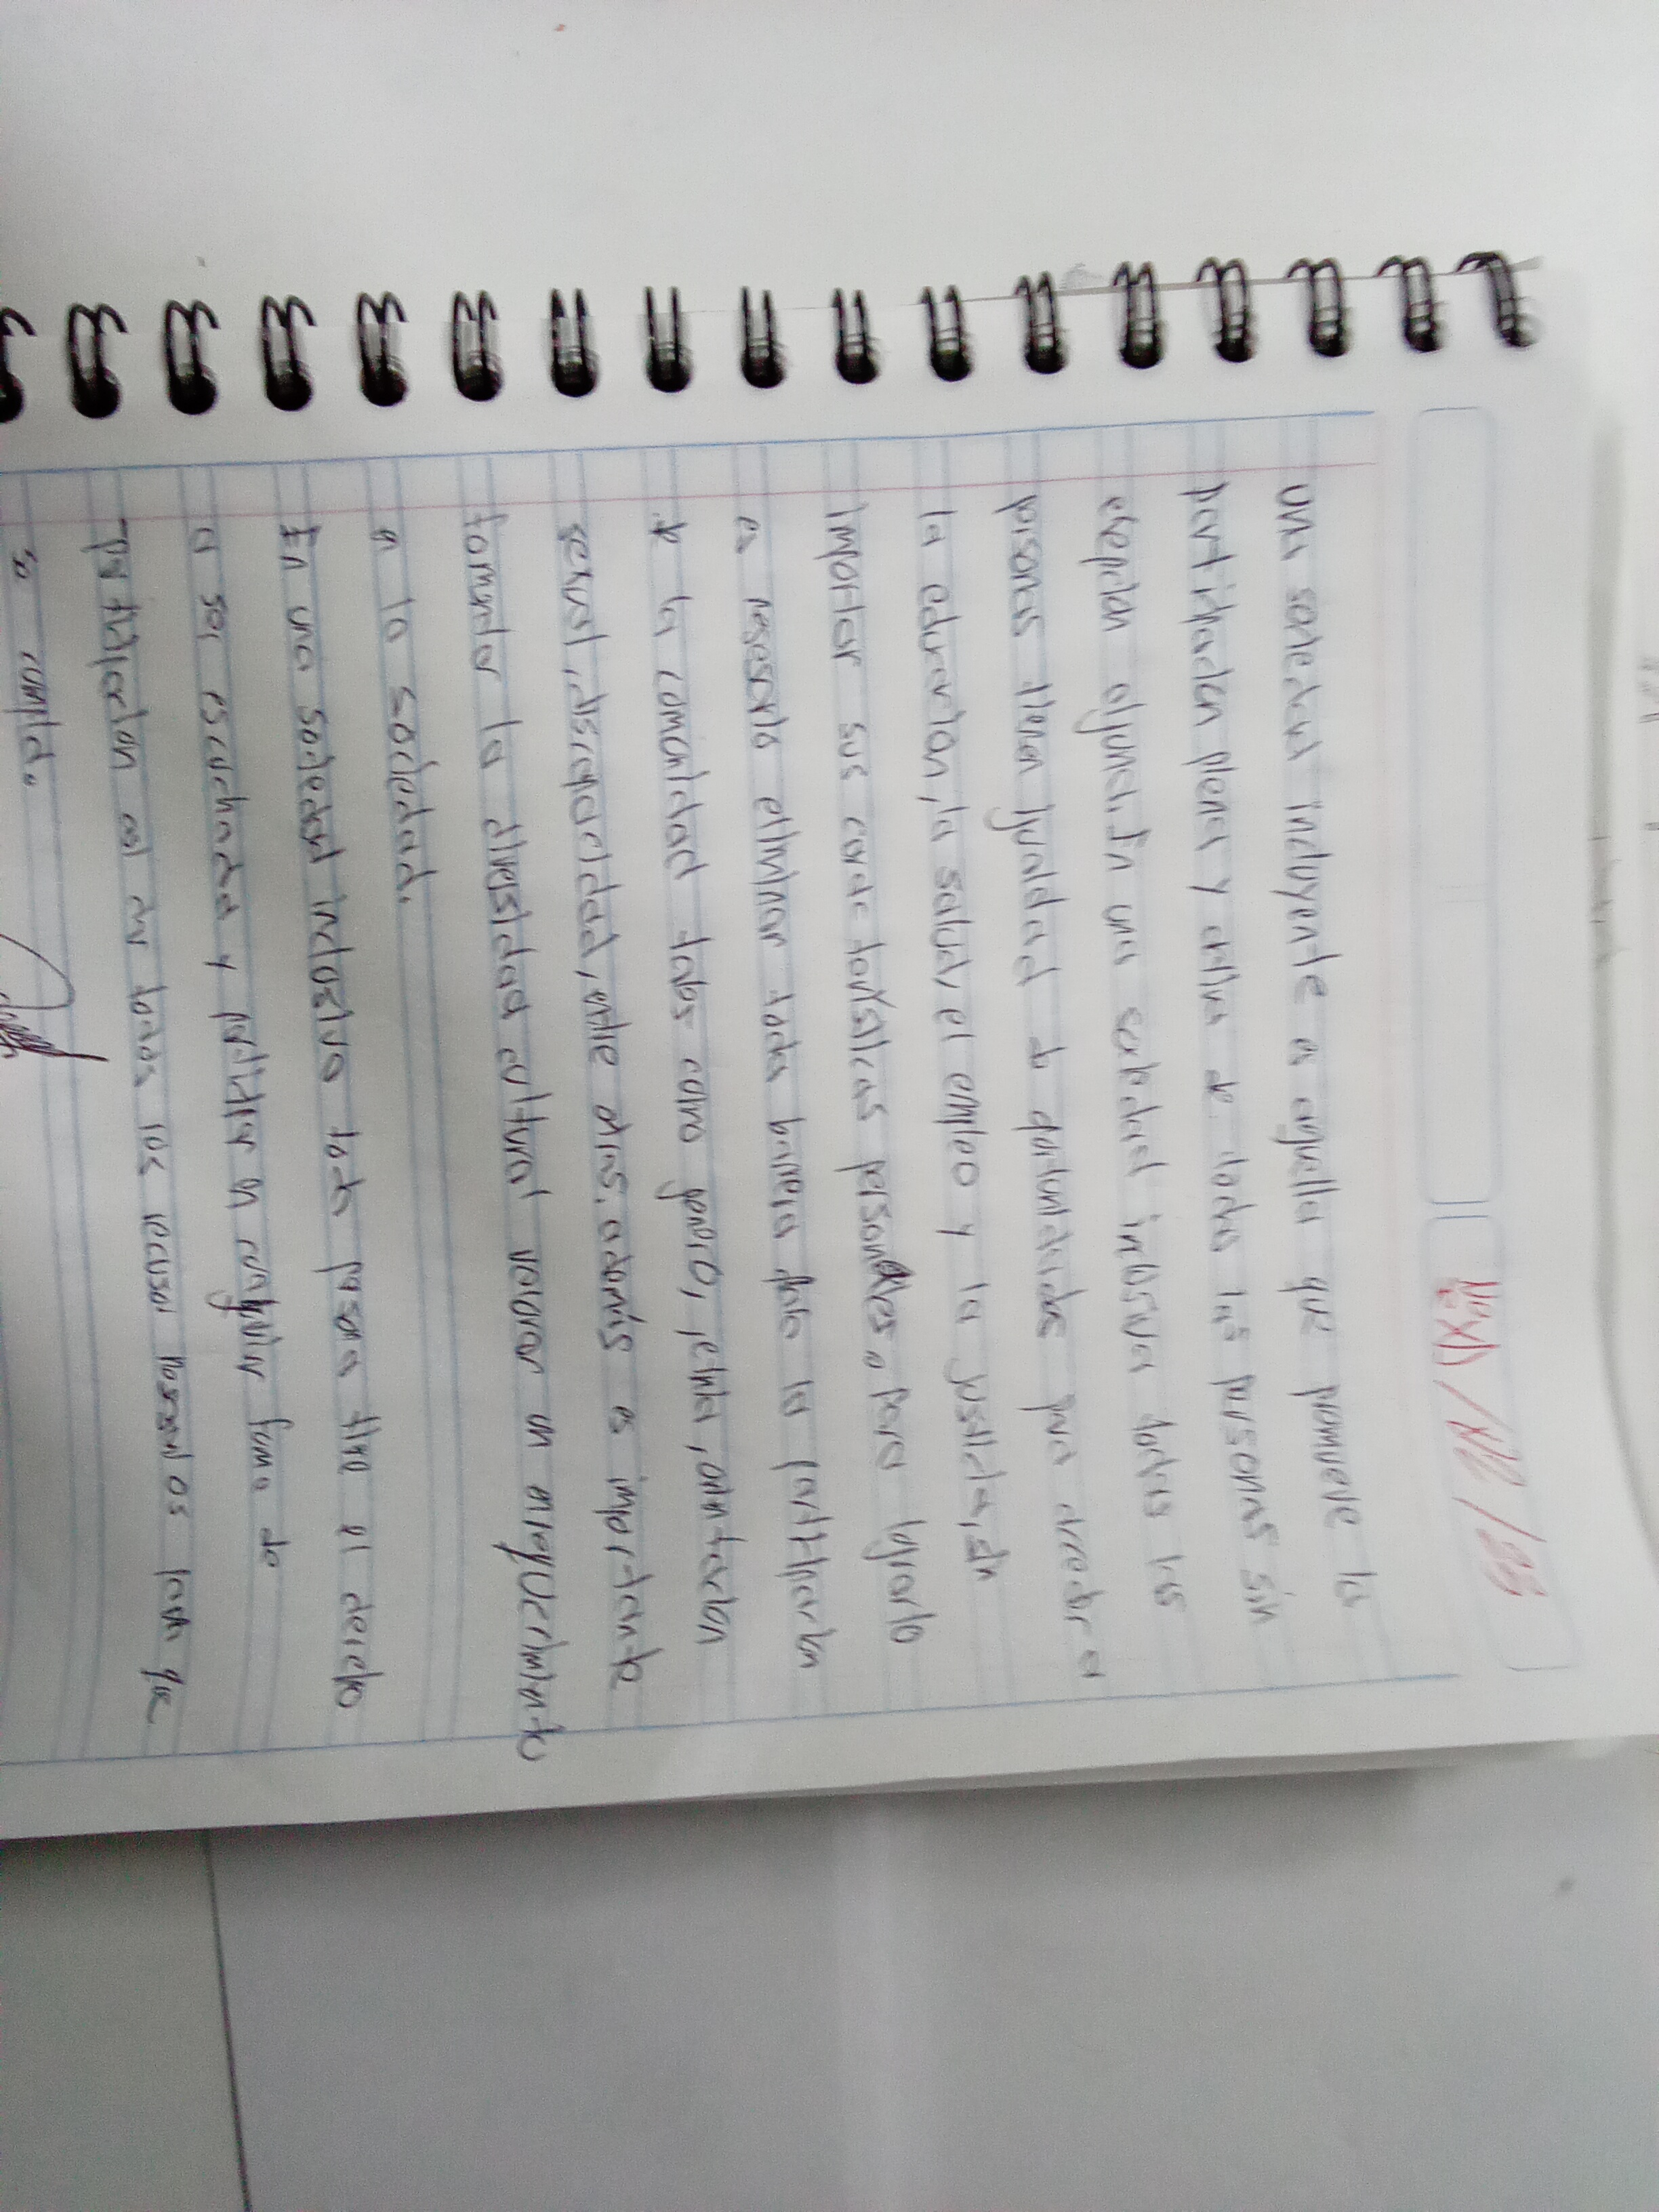 / 12 / 23
Una sociedad incluyente a aquella que promueve la
participacion plena y activa de todas las personas sin
exepcion alguna. En una sociedad inclusiva todas las
personas tienen igualdad de oportunidades para acceder a
la educacion, la salud, el empleo y la justicia, sin
importar sus caracteristicas personales. Para lograrlo
es nesesario eliminar toda barrera para la participacion
de la comunidad tales como genero, etnia, orientacion
sexual, discapacidad, entre otros. además es importante
fomentar la diversidad cultural valorar un
a la sociedad.
En una sociedad inclusiva toda persona tiene el derecho
a ser escuchada y en forma de
asi dar todos los recursos nesesarios para que
se cumpla.